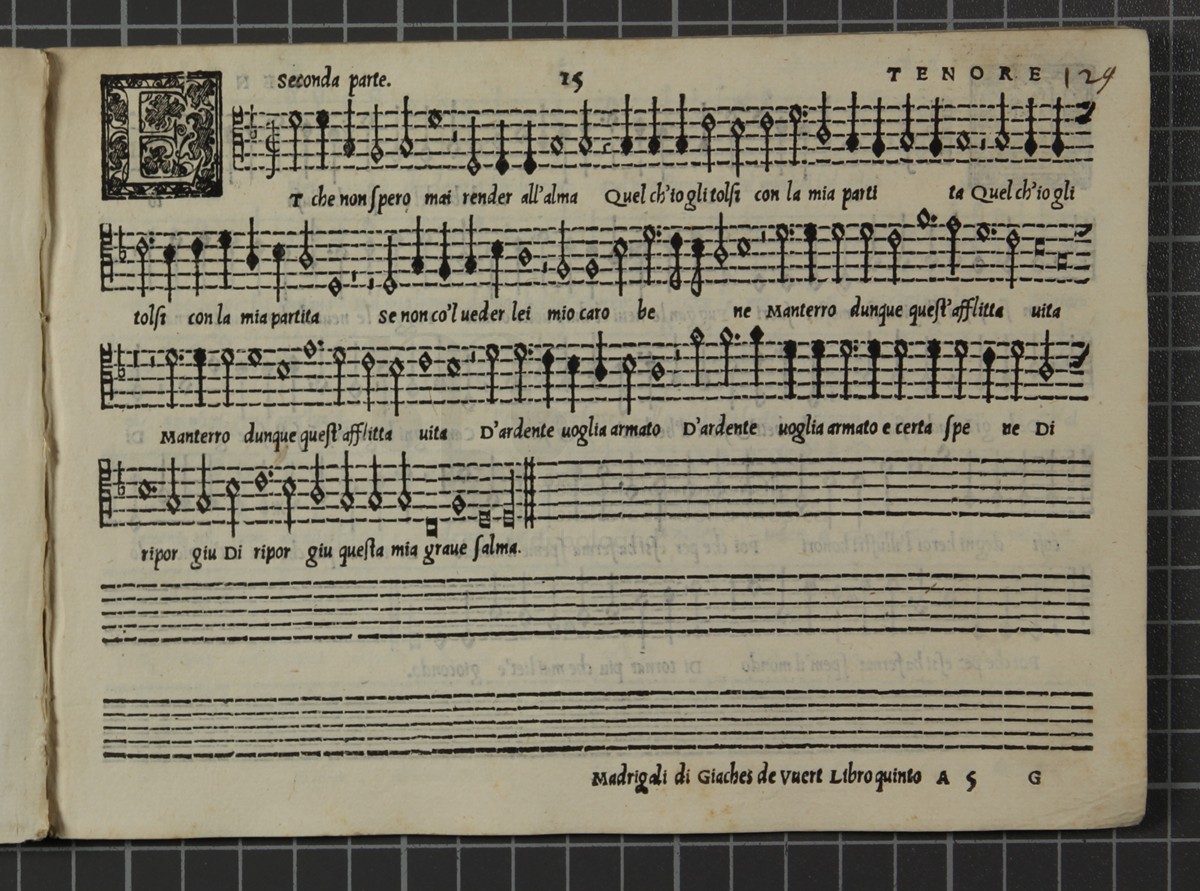 Seconda parte. 15 TENORE 129
ET che non ſpero mai render all'alma Quel ch'io gli tolſi con la mia parti ta Quel ch'io gli
tolſi con la mia partita Se non co'l ueder lei mio caro be ne Manterro dunque queſt'afflitta uita
Manterro dunque queſt'afflitta uita D'ardente uoglia armato D'ardente uoglia armato e certa ſpe ne Di
ripor giu Di ripor giu queſta mia graue ſalma.
Madrigali di Giaches de Vuert Libro quinto A 5 G